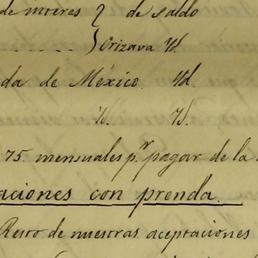 de mores } de saldo
} Orizava Id.
da de México. Id.
Id. Id.
75 mensuales pr. pagar de la
aciones con prenda.
Resto de nuestras aceptaciones